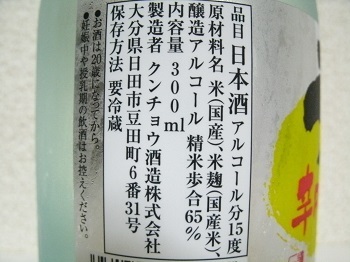 品目 日本酒 アルコール分15度
原材料名 米(国産)、米麹(国産米)、
醸造アルコール 精米歩合65%
内容量 300ml
製造者 クンチョウ酒造株式会社
大分県日田市豆田町6番31号
保存方法 要冷蔵
●お酒は20歳になってから。
●妊娠中や授乳期の飲酒はお控えください。
辛